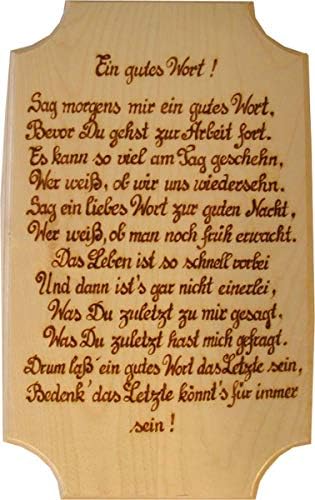 Ein gutes Wort !
Sag morgens mir ein gutes Wort,
Bevor Du gehst zur Arbeit fort.
Es kann so viel am Tag geschehn,
Wer weiß, ob wir uns wiedersehn.
Sag ein liebes Wort zur guten Nacht,
Wer weiß, ob man noch früh erwacht.
Das Leben ist so schnell vorbei
Und dann ist's gar nicht einerlei,
Was Du zuletzt zu mir gesagt,
Was Du zuletzt hast mich gefragt.
Drum laß' ein gutes Wort das Letzte sein,
Bedenk' das Letzte könnt's für immer
sein !